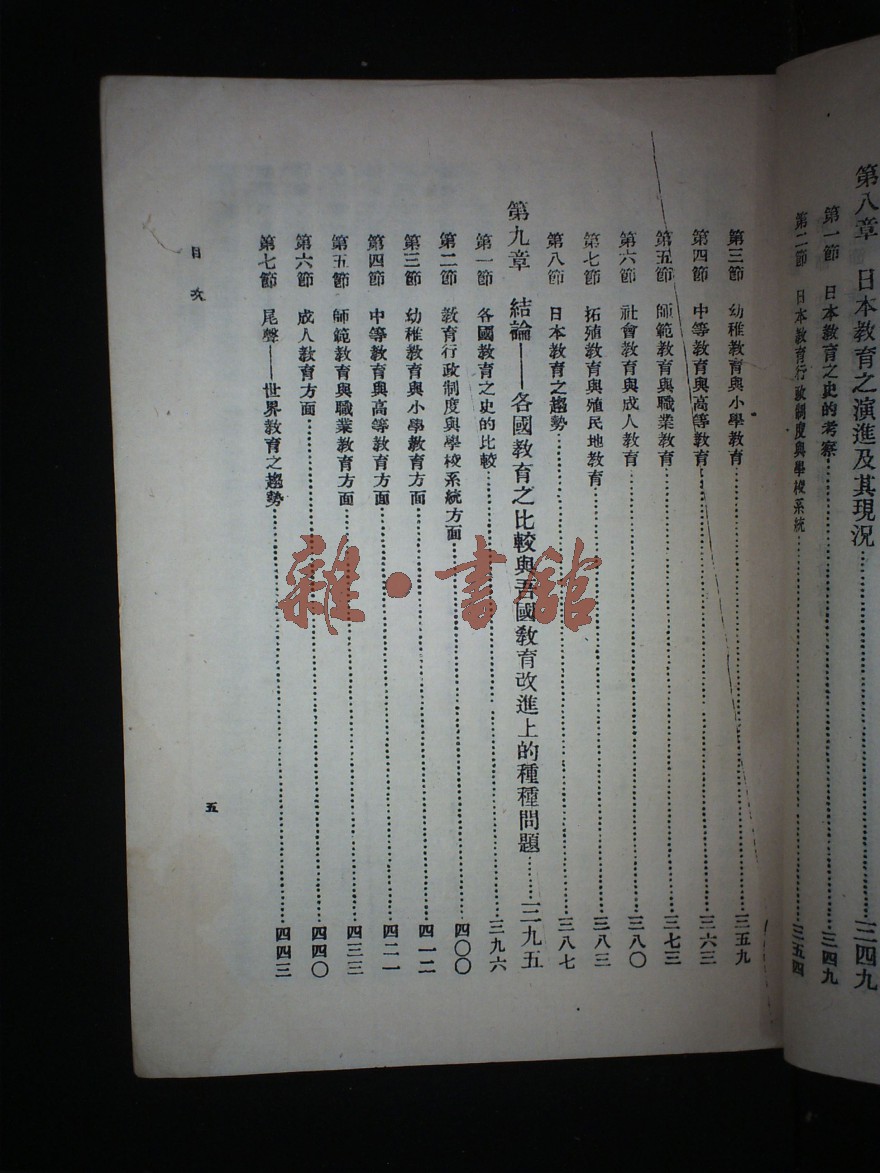 第八章　日本教育之演進及其現況……三四九
第一節　日本教育之史的考察……三四九
第二節　日本教育行政制度與學校系統……三五四
第三節　幼稚教育與小學教育……三五九
第四節　中等教育與高等教育……三六三
第五節　師範教育與職業教育……三七三
第六節　社會教育與成人教育……三八〇
第七節　拓殖教育與殖民地教育……三八三
第八節　日本教育之趨勢……三八七
第九章　結論——各國教育之比較與吾國教育改進上的種種問題……三九五
第一節　各國教育之史的比較……三九六
第二節　教育行政制度與學校系統方面……四〇〇
第三節　幼稚教育與小學教育方面……四一二
第四節　中等教育與高等教育方面……四二一
第五節　師範教育與職業教育方面……四三三
第六節　成人教育方面……四四〇
第七節　尾聲——世界教育之趨勢……四四三
目次
五
雜·書館